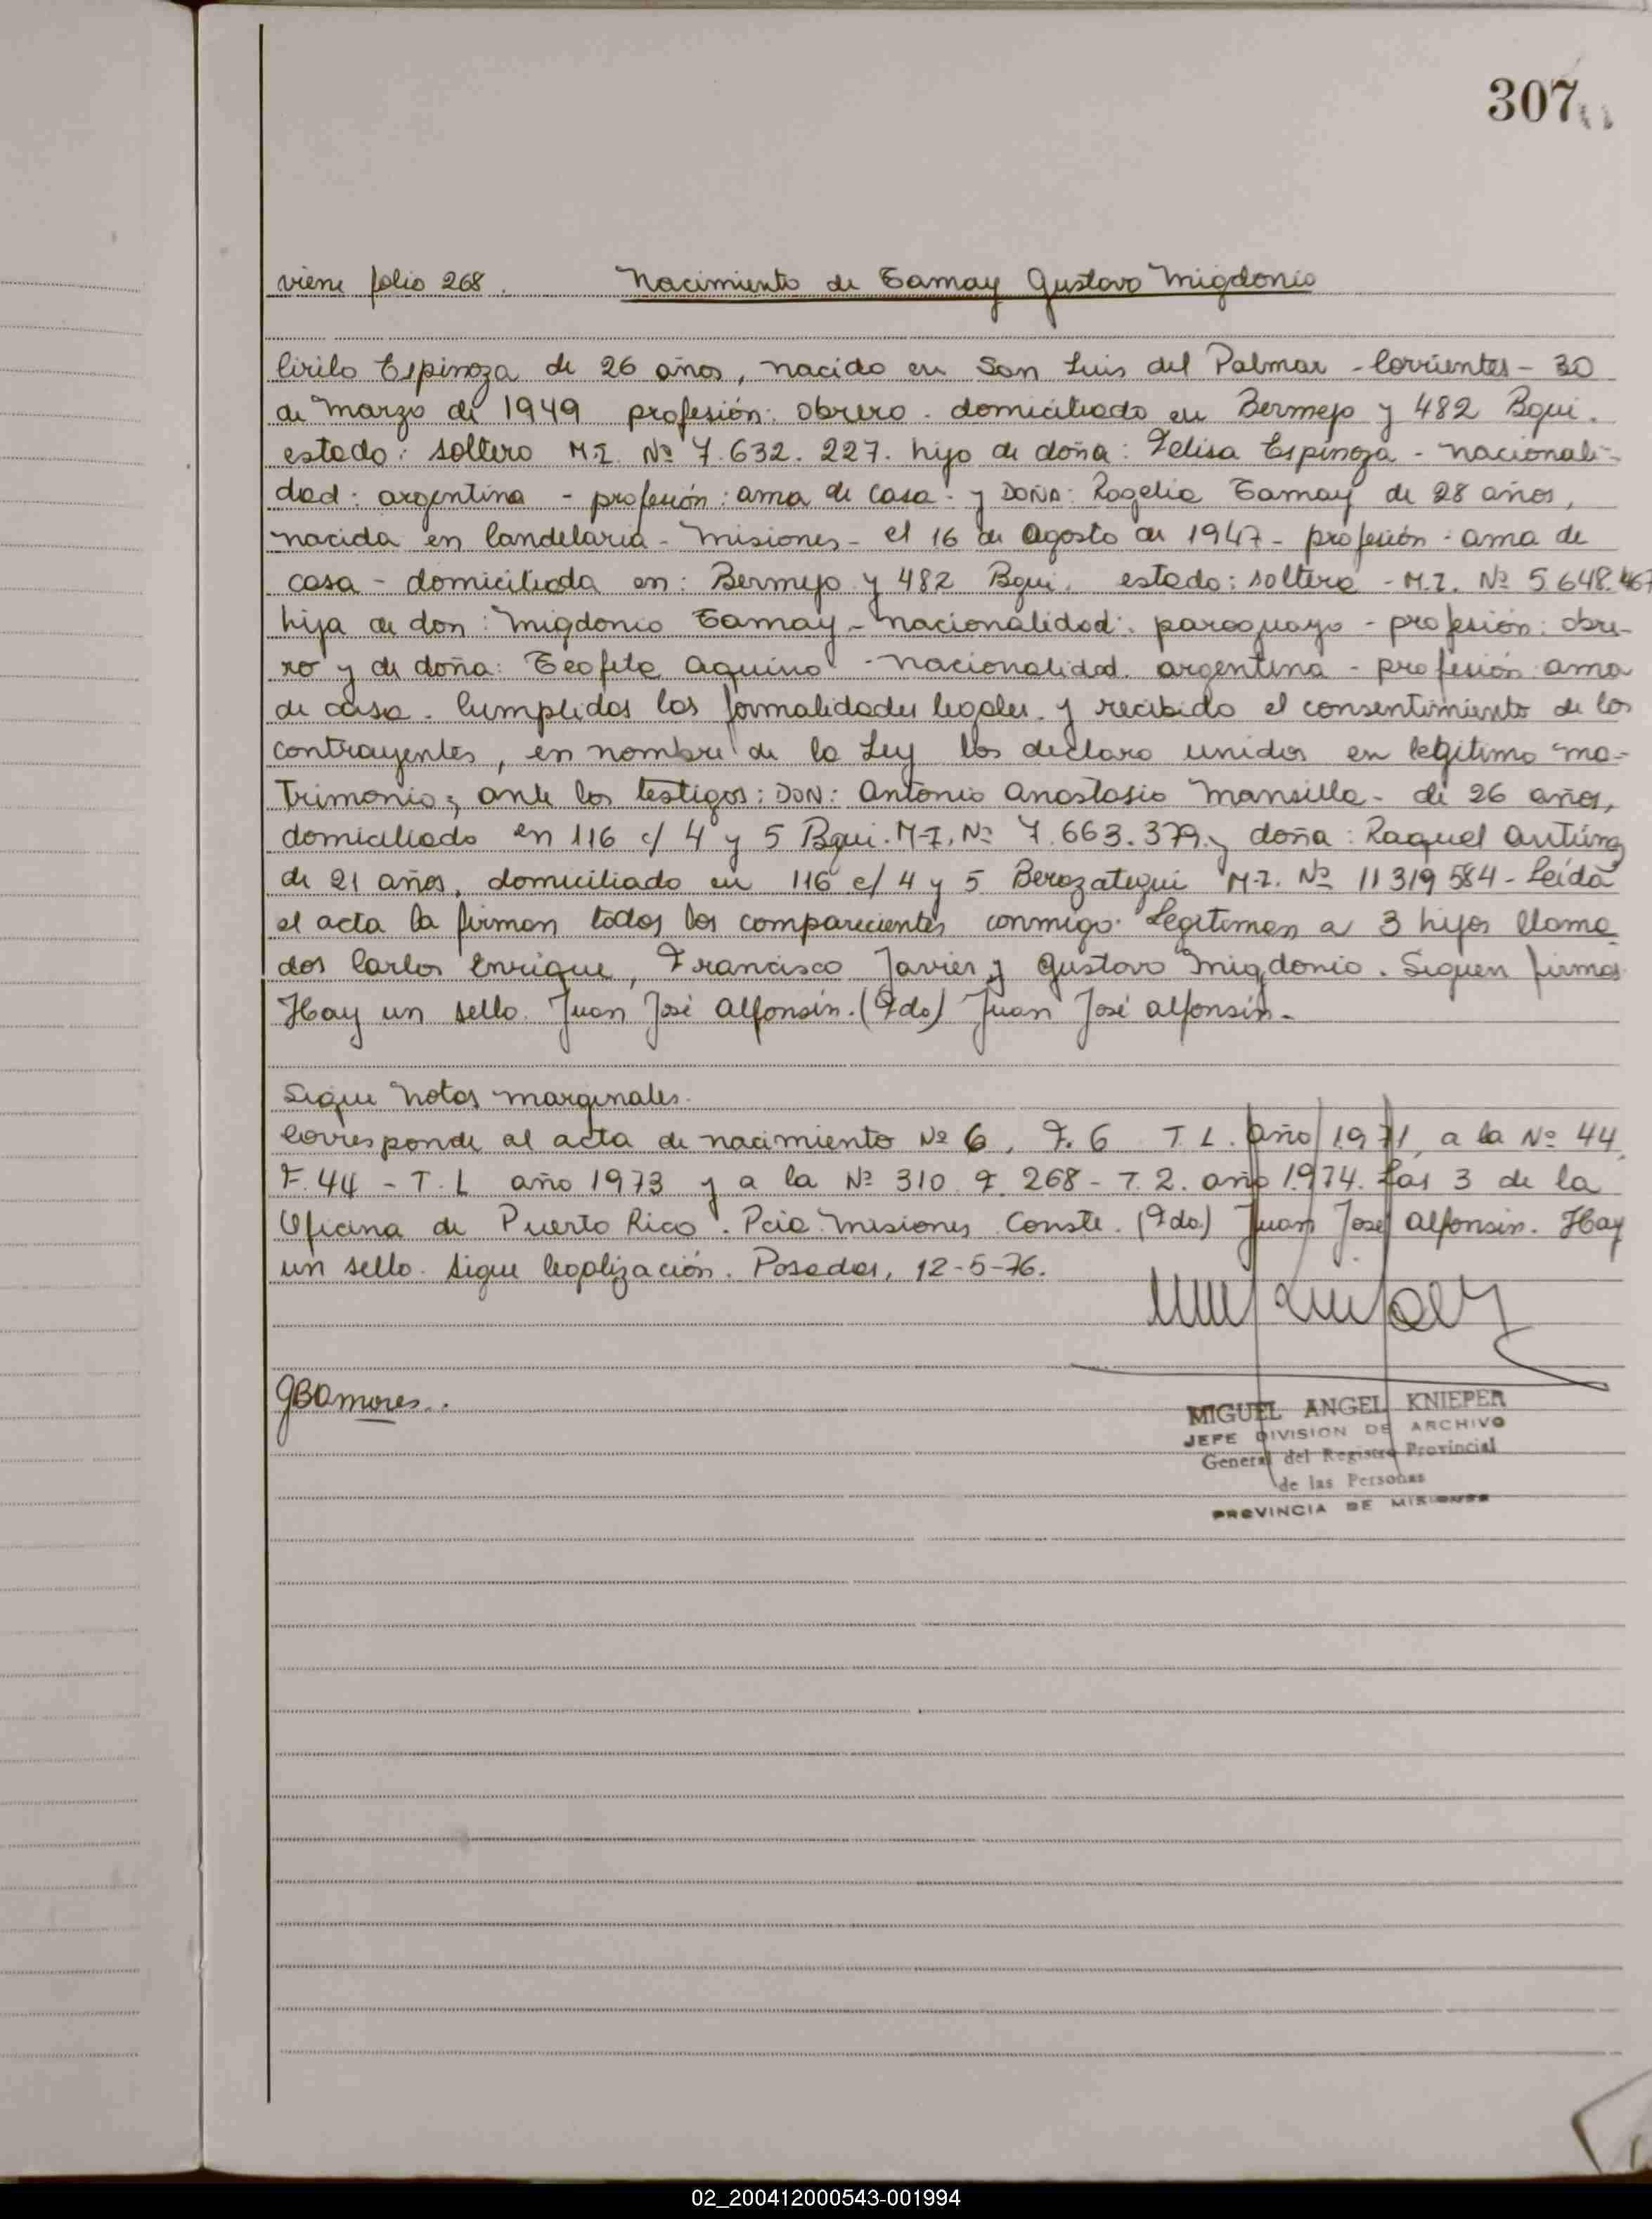 307
viene folio 268. Nacimiento de Tamay Gustavo Migdonio
Cirilo Espinoza de 26 años, nacido en San Luis del Palmar - Corrientes - 30
de Marzo de 1949 profesión: obrero. domiciliado en Bermejo y 482 Bqui.
estado: soltero M.I. Nº 7.632.227. hijo de doña: Felisa Espinoza - nacionali-
dad: argentina - profesión: ama de casa - y DOÑA: Rogelia Tamay de 28 años,
nacida en Candelaria - Misiones - el 16 de Agosto de 1947 - profesión: ama de
casa - domiciliada en: Bermejo y 482 Bqui. estado: soltera - M.I. Nº 5.648.467
hija de don: Migdonio Tamay - nacionalidad: paraguayo - profesión: obre-
ro y de doña: Teofila Aquino - nacionalidad. argentina - profesión ama
de casa. Cumplidas las formalidades legales y recibido el consentimiento de los
contrayentes, en nombre de la Ley los declaro unidos en legitimo ma-
trimonio; ante los testigos: DON: Antonio Anastasio Mansilla - de 26 años,
domiciliado en 116 c/ 4 y 5 Bqui. M-I. Nº 7.663.379 y doña: Raquel Antúnez
de 21 años, domiciliado en 116 e/ 4 y 5 Berazategui M-I. Nº 11319584 - Leída
el acta la firman todos los comparecientes conmigo. Legitiman a 3 hijos llama
dos Carlos Enrique, Francisco Javier y Gustavo Migdonio. Siguen firmas
Hay un sello. Juan José Alfonsín. (Fdo) Juan José Alfonsín.-
Sigue Notas marginales.
Corresponde al acta de nacimiento Nº 6, F. 6 T. 1. Año 1971, a la Nº 44,
F. 44 - T. 1 año 1973 y a la Nº 310 F. 268 - T. 2. año 1974. Las 3 de la
Oficina de Puerto Rico. Pcia. Misiones. Conste. (Fdo.) Juan José Alfonsín. Hay
un sello. Sigue legalización. Posadas, 12-5-76.
GBAmores.
MIGUEL ANGEL KNIEPER
JEFE DIVISION DE ARCHIVO
General del Registro Provincial
de las Personas
PROVINCIA DE MISIONES
02_200412000543-001994